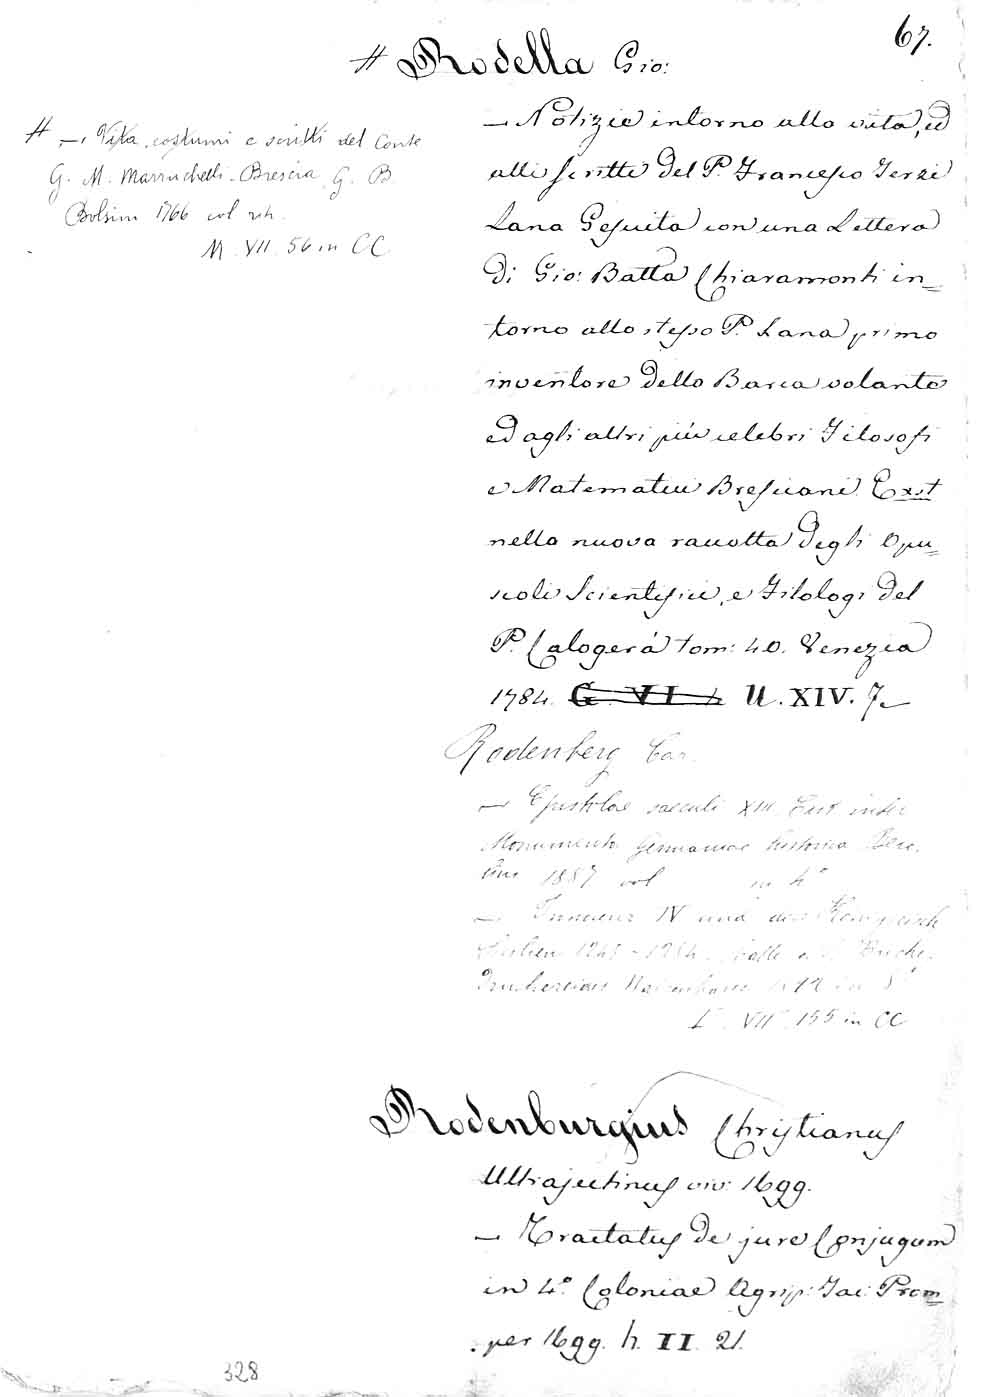 67.
# Rodella Gio:
# — Vita, costumi e scritti del Conte
G. M. Mazzuchelli. Brescia G. B.
Bolsini 1766 vol
M. VII. 56 in CC
— Notizie intorno alla vita, ed
alli scritti del P. Francesco Terzi
Lana Gesuita con una Lettera
di Gio: Batta Chiaramonti in=
torno allo stesso P. Lana primo
inventore della Barca volante
ed agli altri più celebri Filosofi
e Matematici Bresciani. Exst
nella nuova raccolta degli Opu=
scoli Scientifici, e Filologi del
P. Calogerá tom: 40. Venezia
1784. G VI U. XIV. 7.
Rodenberg Car.
— Epistolae saeculi XIII. Ext inter
Monumenta Germaniae historica Bero
lini 1887 vol in 4°
— Innocenz IV und das Königreich
Sicilien 1245 - 1254. Halle
in 8°
L. VII. 155 in CC
Rodenburgius Christianus
Ultrajectinus viv: 1699.
— Tractatus de jure Conjugum
in 4.° Coloniae Agrip: Jac: Prom=
per 1699. h. II. 21.
328